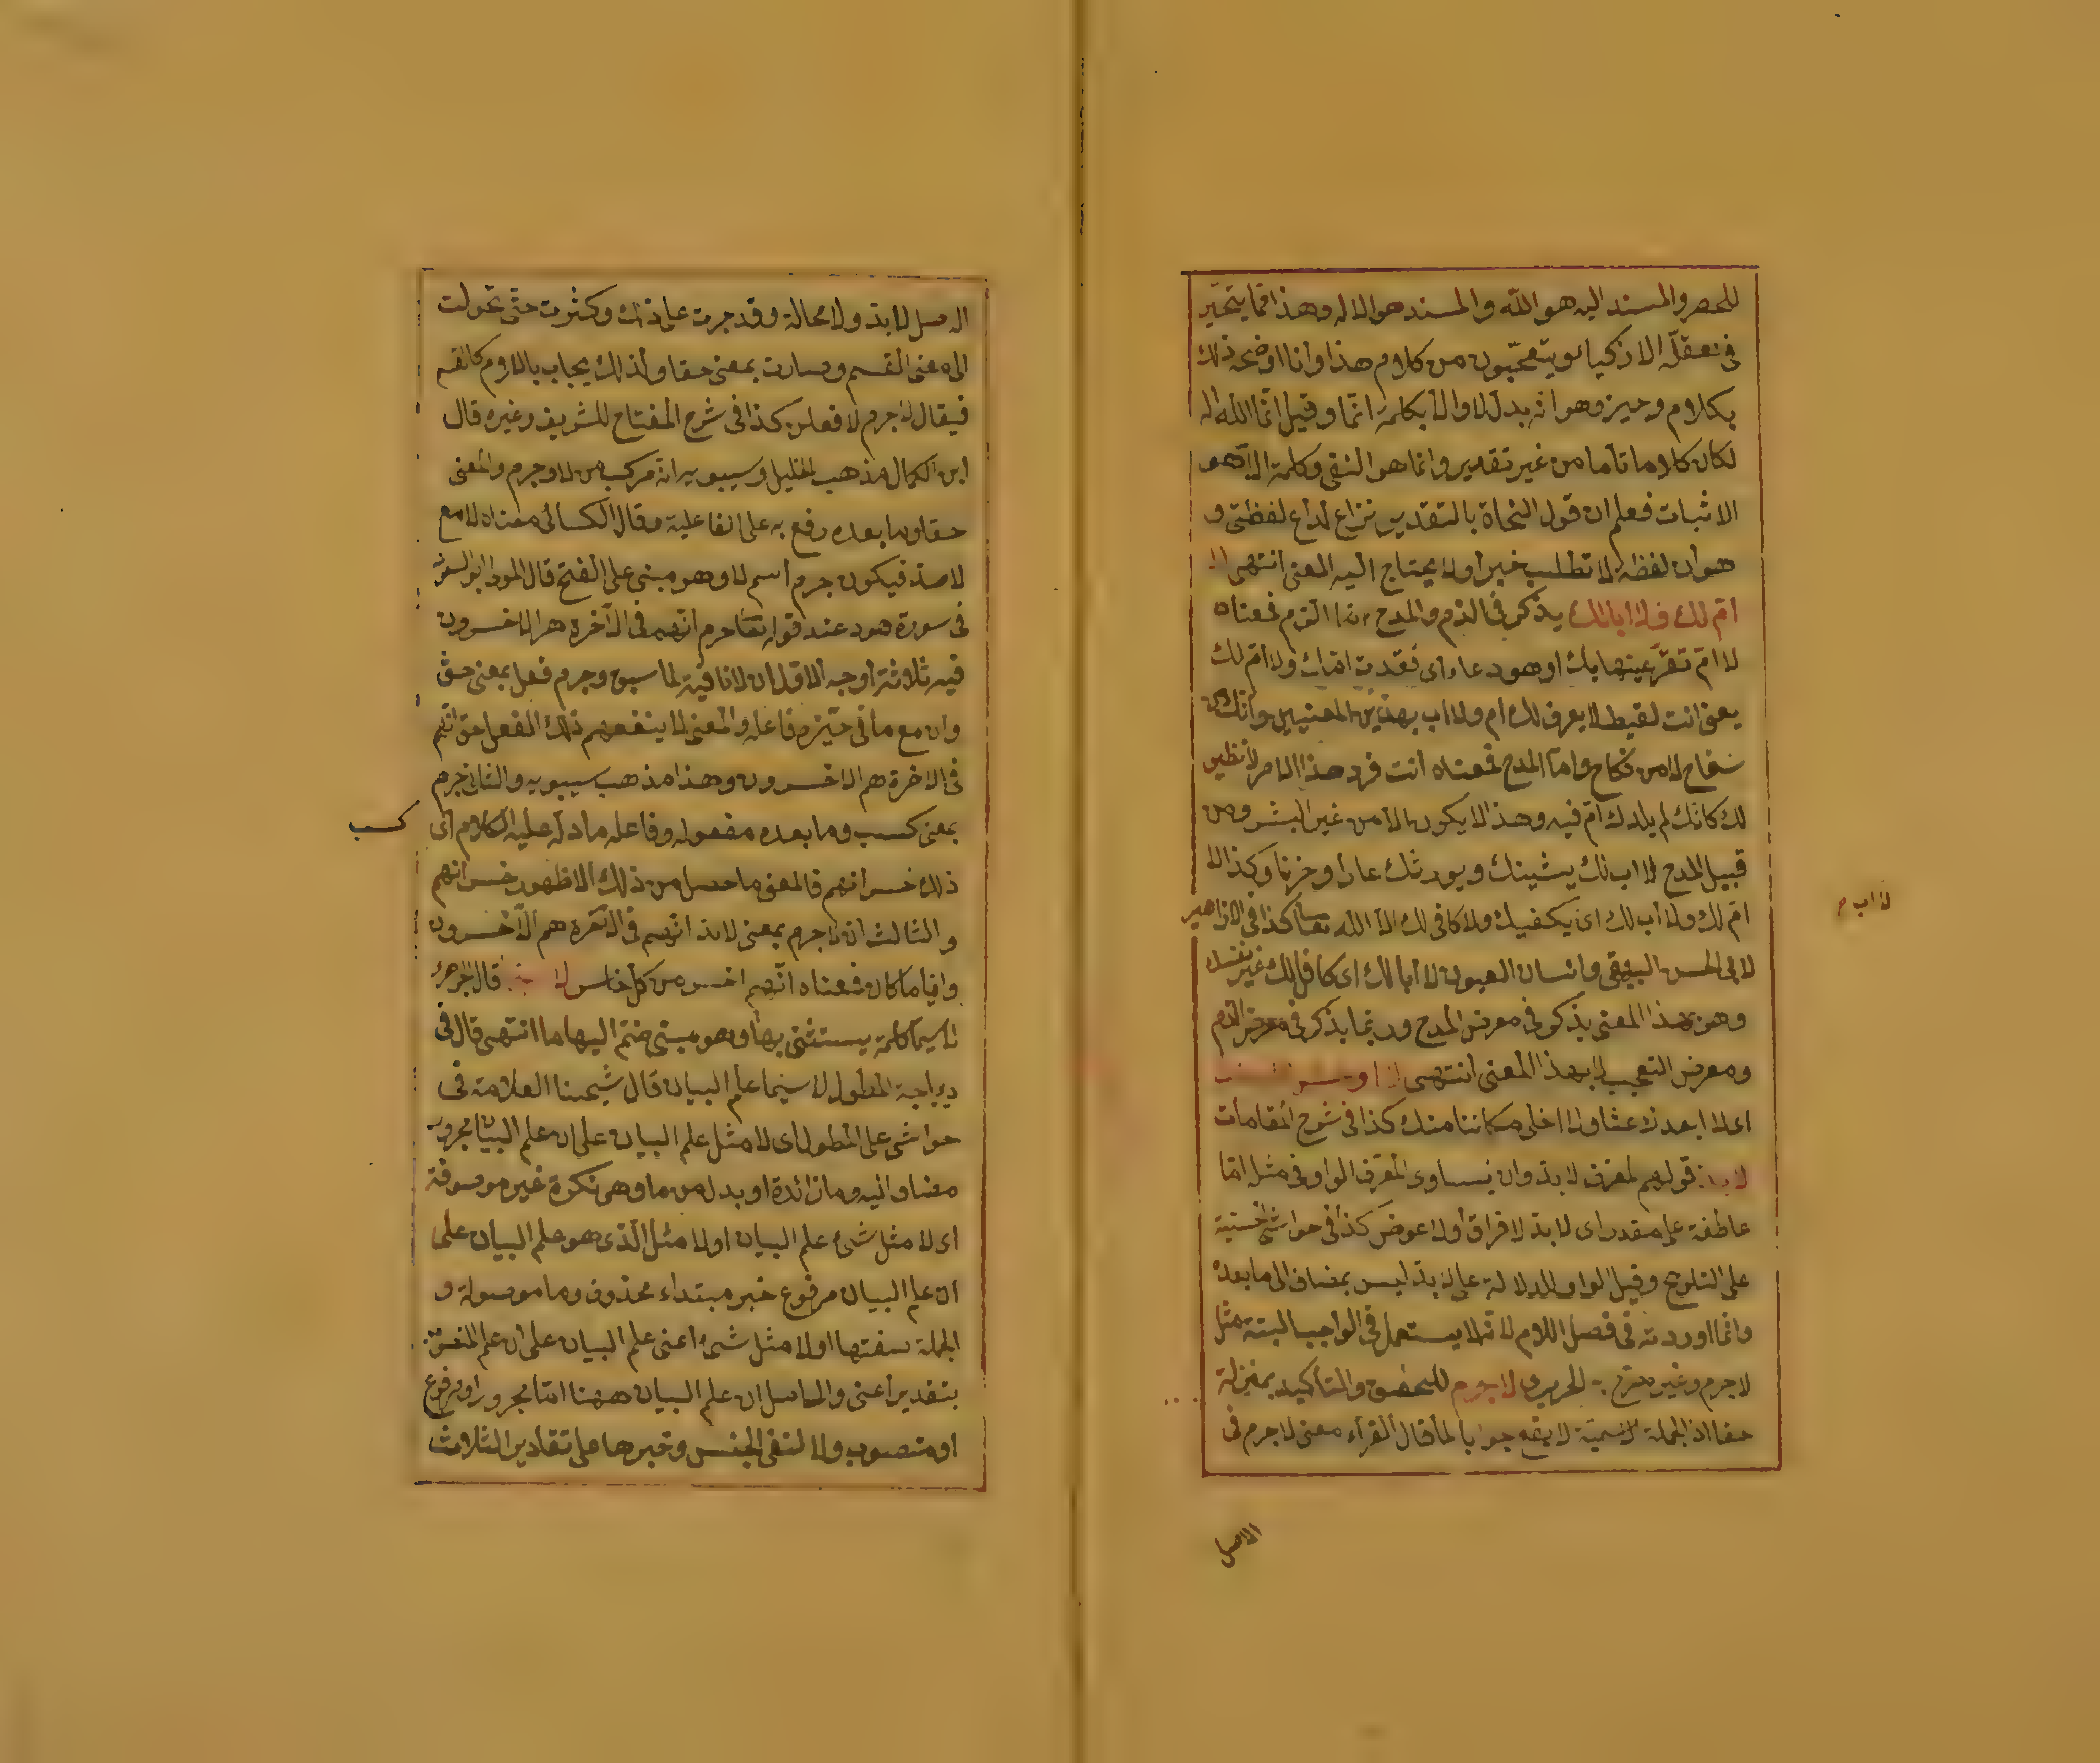 للحصر والمسند اليه هو الله والمسند هو الاله وهذا مما يتحير
فى تعقله الاذكياء ويتعجبون من كلام هذا وانا اوضحه ذلك
بكلام وجيز وهو انه بدل لا والا بكلمة انما وقيل انما الله اله
لكان كلاما تاما من غير تقدير وانما هو النفى وكلمة الا هو
الاثبات فعلم ان قول النحاة بالتقدير نزاع لداع لفظى و
هو ان لفظه لا تطلب خبرا ولا يحتاج اليه المعنى انتهى لا
ام لك ولا ابا لك يذكر فى الذم والمدح اما الذم فمعناه
لا ام تقر عينها بك او هو دعاء اى فقدت امك ولا ام لك
يعنى انت لقيط لا يعرف لك ام ولا اب بهذين المعنيين وانك من
سفاح لا من نكاح واما المدح فمعناه انت فرد هذا الامر لا نظير
لك كانك لم يلدك ام فيه وهذا لا يكون الا من غير البشر ومن
قبيل المدح لا اب لك يشينك ويورثك عارا وحزنا وكذا لا
ام لك ولا اب لك اى يكفيك ولا كافى لك الا الله تعا كذا فى الازاهير
لا اب م
لابى الحسن البيهقى وانسان العيون لا ابا لك اى كافل لك غير نفسك
وهو بهذا المعنى يذكر فى معرض المدح وربما يذكر فى معرض الذم
ومعرض التعجب لا بهذا المعنى انتهى
اى لا ابعد لا عشا ولا اخلى مكاننا منك كذا فى شرح المقامات
لا بد قولهم لمعرف لا بد وان يساوى المعرف الواو فى مثل اما
عاطفة على مقدر اى لا بد لا فراق ولا عوض كذا فى حواشى حسنية
على التلويح وقيل الواو للدلالة على لا بد ليس بمضاف الى ما بعده
وانما اوردته فى فصل اللام لانه لا يستعمل فى الواجب البتة مثل
لا جرم وغير الحريرى لا جرم للتحقيق والتأكيد بمنزلة
حقا اذ الجملة الاسمية لا يقع جوابا لما قال الفراء معنى لا جرم فى
الاصل
الاصل لا بد ولا محالة وقد جرت على ذلك وكثرت حتى تحولت
الى معنى القسم وصارت بمعنى حقا ولذلك يجاب باللام كالقسم
فيقال لا جرم لافعلن كذا فى شرح المفتاح للشريف وغيره قال
ابن الكمال مذهب الخليل وسيبويه انه مركب من لا وجرم والمعنى
حقا وما بعده رفع به على الفاعلية وقال الكسائى معناه لا مع
لا صد فيكون جرم اسم لا وهو مبنى على الفتح قال المولى ابو السعود
فى سورة هود عند قوله تعا لا جرم انهم فى الآخرة هم الاخسرون
فيه ثلاثة اوجه الاول ان لا نافية لما سبق وجرم فعل بمعنى حق
وان مع ما فى حيزه فاعله والمعنى لا ينفعهم ذلك الفعل حق انهم
فى الاخرة هم الاخسرون وهذا مذهب سيبويه والثانى جرم
بمعنى كسب وما بعده مفعوله وفاعله ما دل عليه الكلام اى
كسب
ذلك خسرانهم فالمعنى ما حصل من ذلك الا ظهور خسرانهم
والثالث ان لا جرم بمعنى لا بد انهم فى الآخرة هم الاخسرون
وايا ما كان فمعناه انهم اخسر من كل خاسر قال الجوهرى
لا سيما كلمة يستثنى بها وهو سى ضم اليها ما انتهى قال فى
ديباجة المطول لا سيما علم البيان قال شيخنا العلامة فى
حواشى على المطول اى لا مثل علم البيان على ان علم البيان مجرور
مضاف اليه وما زائدة او بدل من ما وهى نكرة غير موصوفة
اى لا مثل شئ علم البيان او لا مثل الذى هو علم البيان على
ان علم البيان مرفوع خبر مبتداء محذوف وما موصولة و
الجملة صفتها او لا مثل شئ اعنى علم البيان على ان علم
بتقدير اعنى والحاصل ان علم البيان ههنا اما مجرور او مرفوع
او منصوب ولا لنفى الجنس وخبرها على تقادير الثلاث